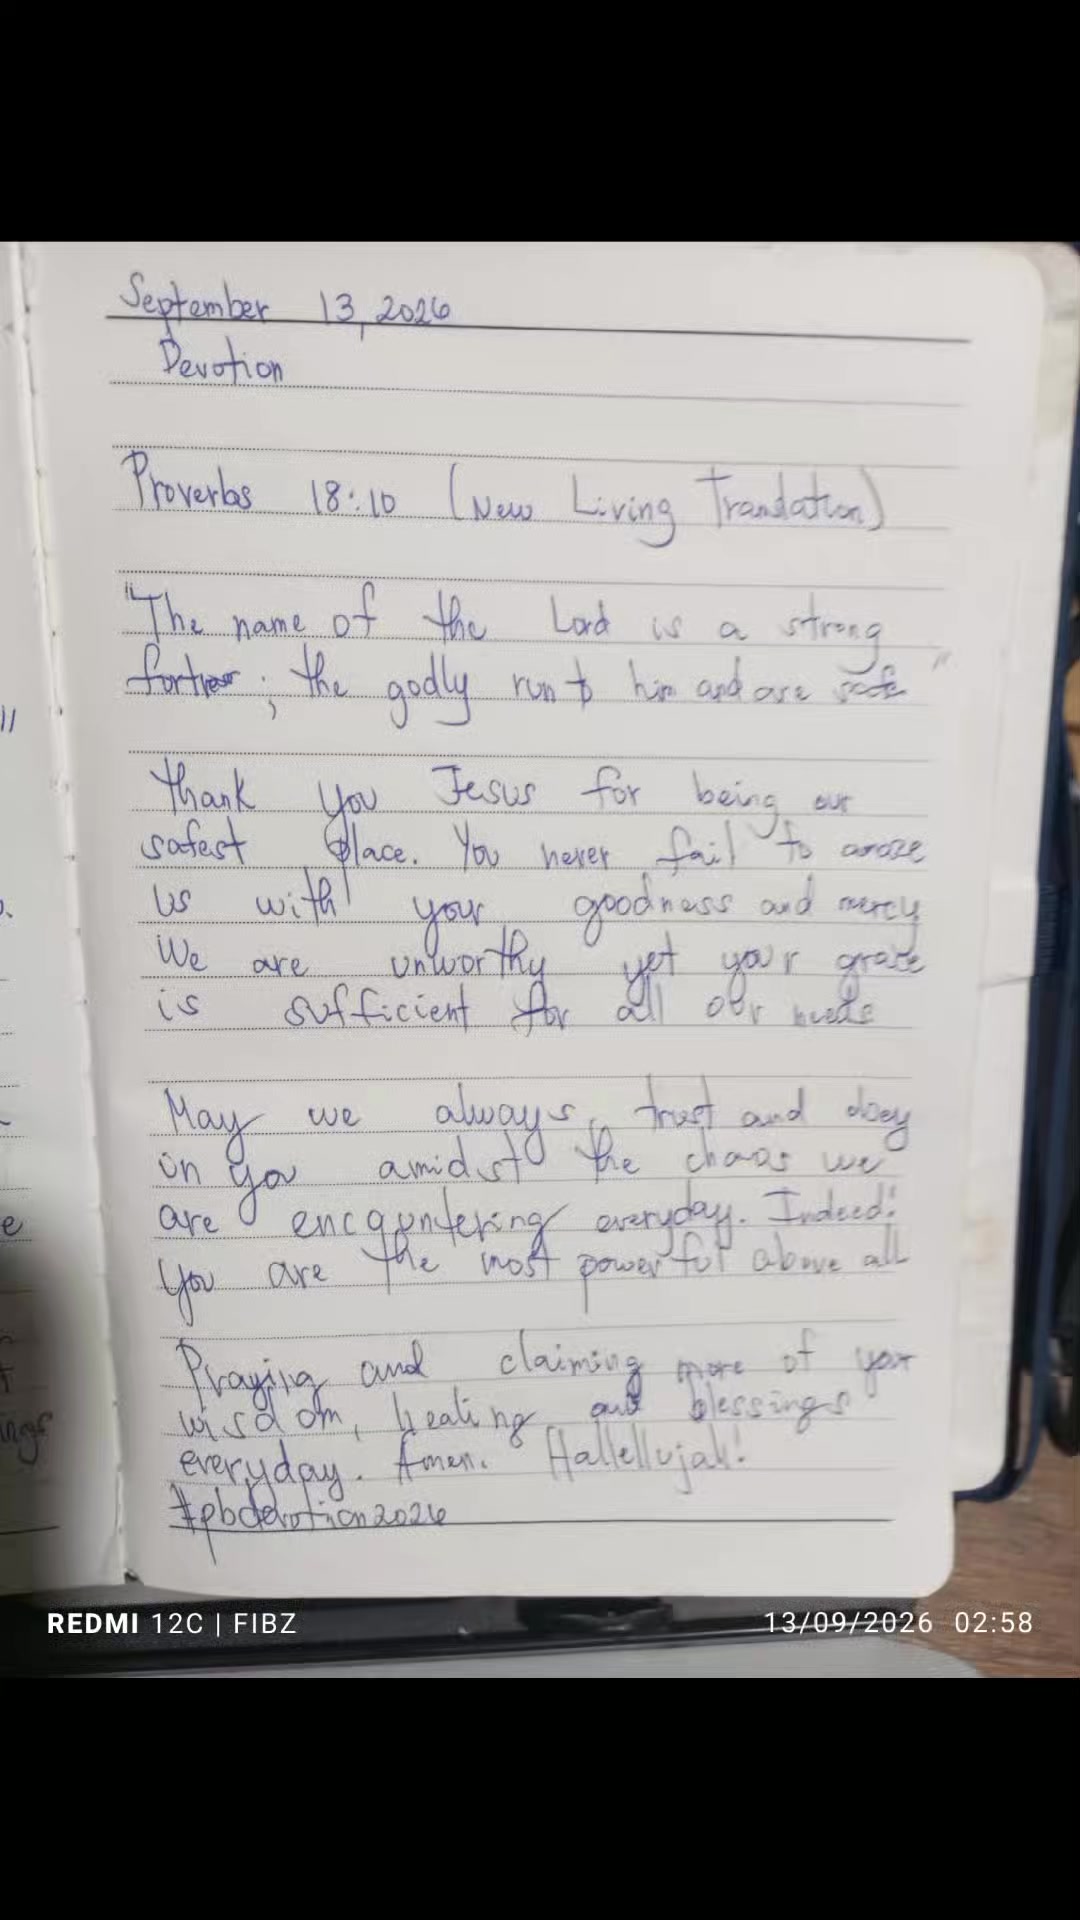 September 13, 2026
Devotion
Proverbs 18:10 (New Living Translation)
"The name of the Lord is a strong
fortress; the godly run to him and are safe"
Thank you Jesus for being our
safest place. You never fail to amaze
us with your goodness and mercy
We are unworthy yet your grace
is sufficient for all our needs
May we always trust and obey
on you amidst the chaos we
are encountering everyday. Indeed!
you are the most powerful above all
Praying and claiming more of your
wisdom, healing and blessings
everyday. Amen. Hallellujah!
#pbdevotion2026
REDMI 12C | FIBZ 13/09/2026 02:58